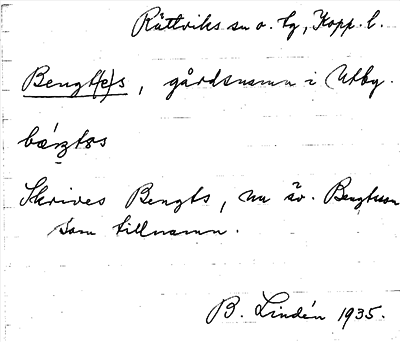 Rättviks sn o. tg, Kopp. l.
Bengt(e)s, gårdsnamn i Utby.
bæŋtəs
Skrives Bengts, nu äv. Bengtsson
som tillnamn.
B. Lindén 1935.